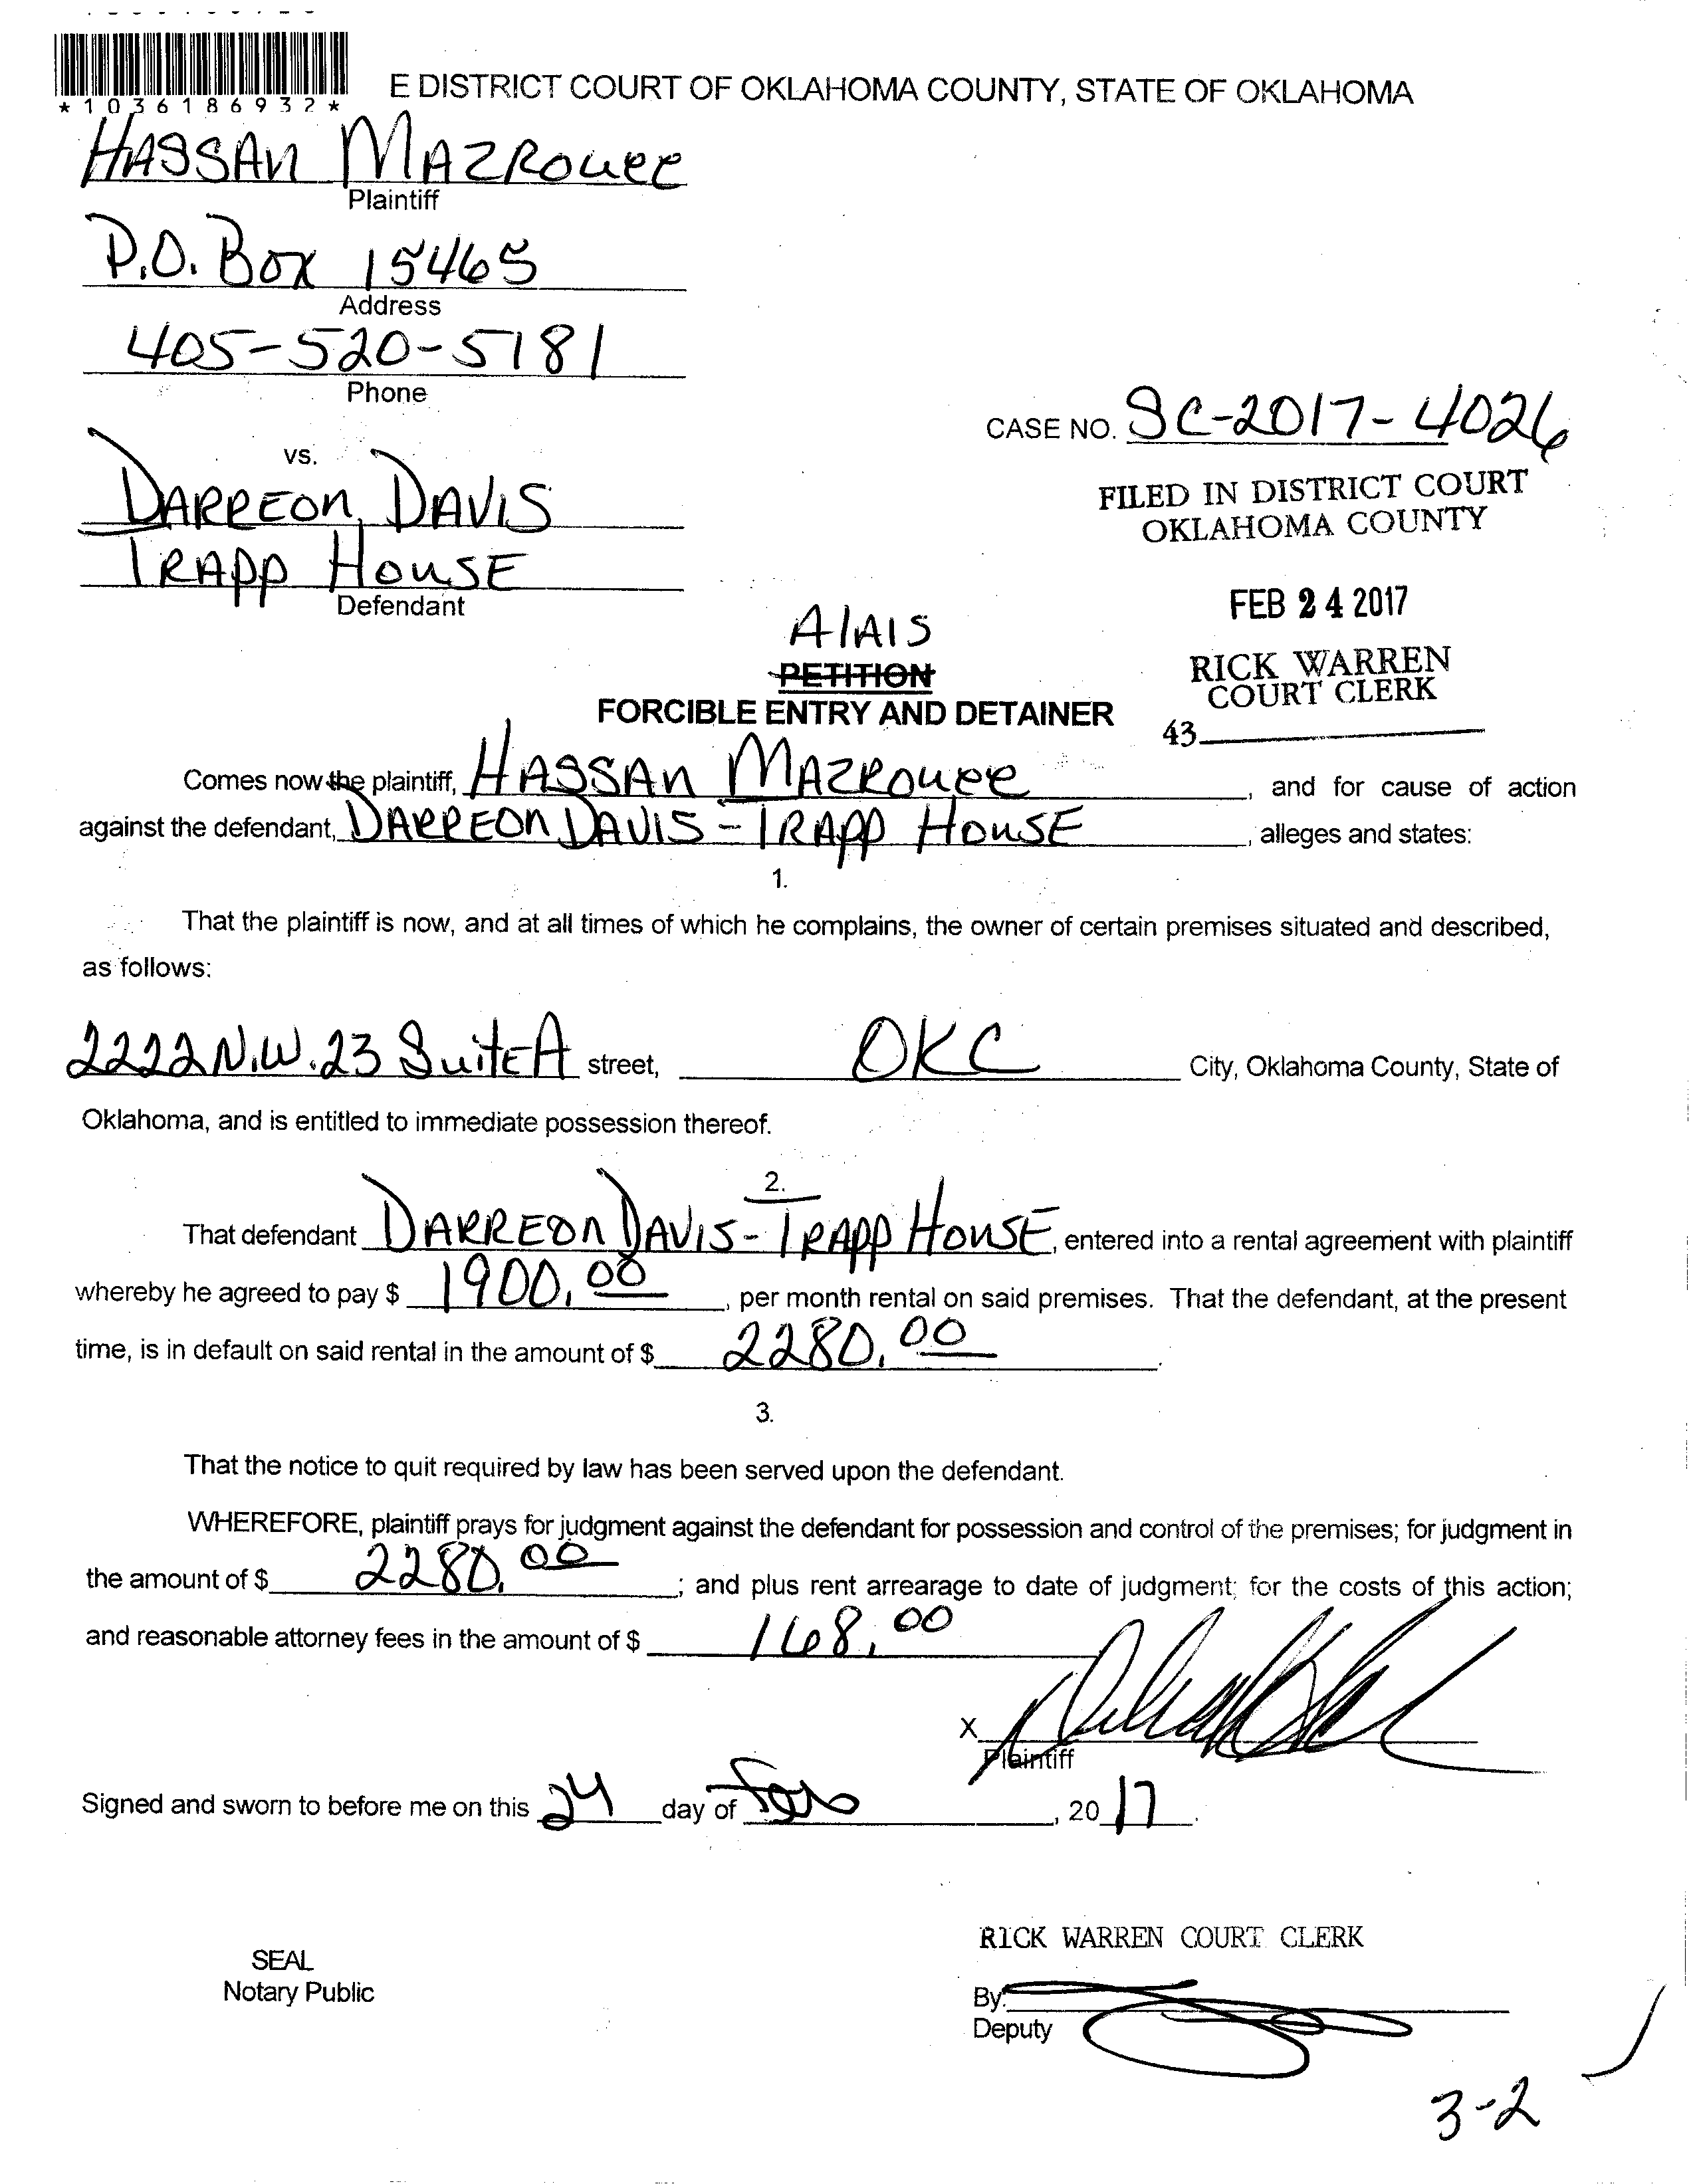 *1036186932*
E DISTRICT COURT OF OKLAHOMA COUNTY, STATE OF OKLAHOMA
HASSAN MAZROUEE
Plaintiff
P.O. BOX 15465
Address
405-520-5181
Phone
CASE NO. SC-2017-4026
vs.
FILED IN DISTRICT COURT
OKLAHOMA COUNTY
DARREON DAVIS
TRAPP HOUSE
Defendant
FEB 24 2017
AlAIS
RICK WARREN
COURT CLERK
PETITION
FORCIBLE ENTRY AND DETAINER
43
Comes now the plaintiff, HASSAN MAZROUEE, and for cause of action
against the defendant, DARREON DAVIS - TRAPP HOUSE, alleges and states:
1.
That the plaintiff is now, and at all times of which he complains, the owner of certain premises situated and described,
as follows:
2222 N.W. 23 SuitEA street, OKC City, Oklahoma County, State of
Oklahoma, and is entitled to immediate possession thereof.
2.
That defendant DARREON DAVIS - TRAPP HOUSE, entered into a rental agreement with plaintiff
whereby he agreed to pay $ 1900.00, per month rental on said premises. That the defendant, at the present
time, is in default on said rental in the amount of $ 2280.00.
3.
That the notice to quit required by law has been served upon the defendant.
WHEREFORE, plaintiff prays for judgment against the defendant for possession and control of the premises; for judgment in
the amount of $ 2280.00; and plus rent arrearage to date of judgment; for the costs of this action;
and reasonable attorney fees in the amount of $ 168.00
X
Plaintiff
Signed and sworn to before me on this 24 day of Feb, 2017.
RICK WARREN COURT CLERK
SEAL
Notary Public
By:
Deputy
3-2